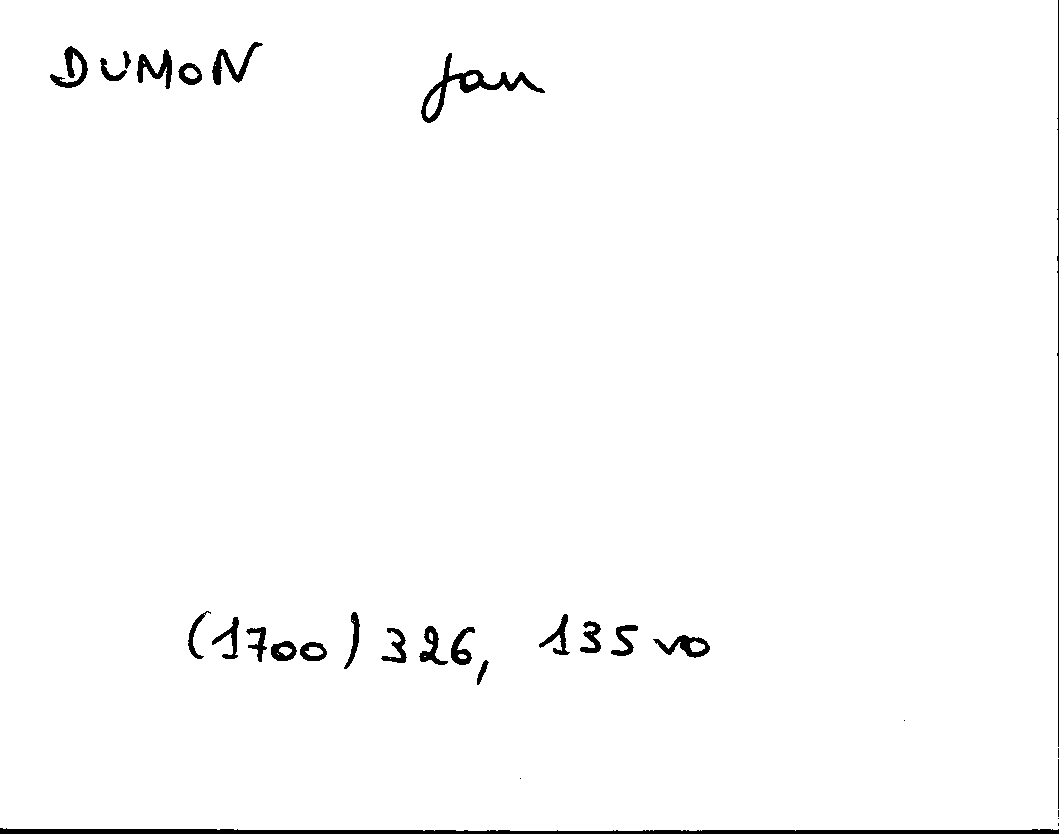 DUMON Jan
(1700) 326, 135 vo